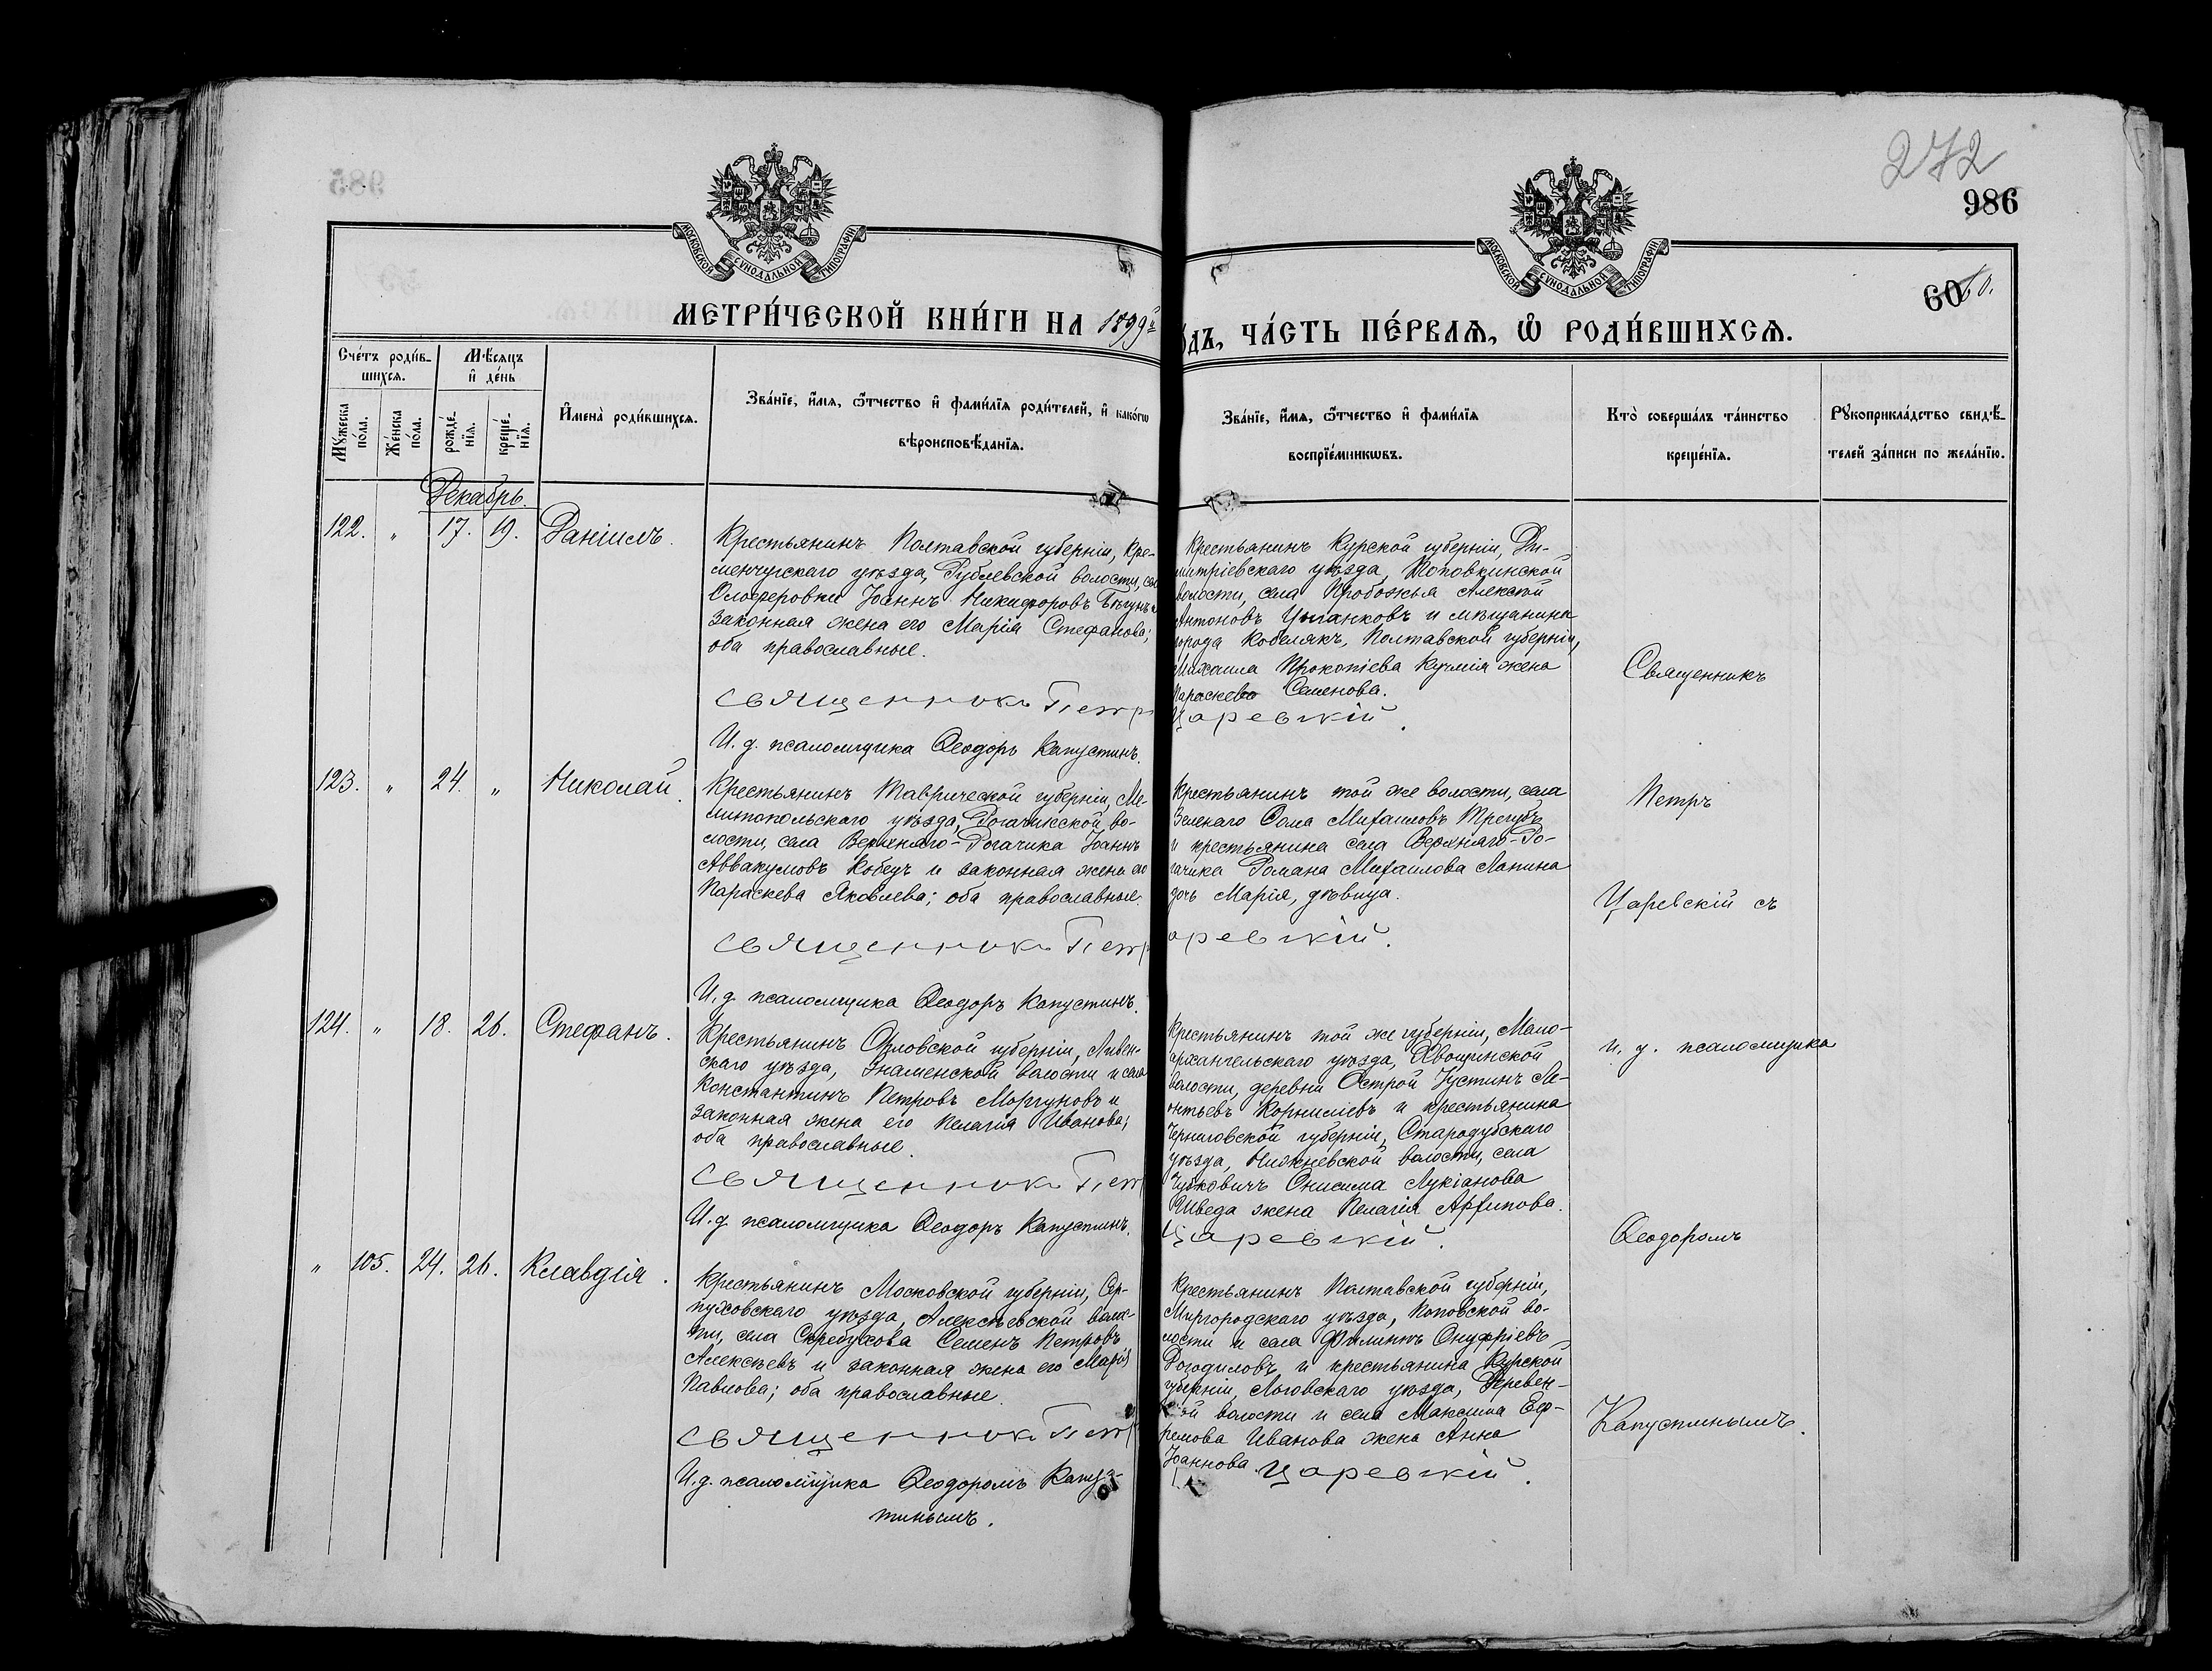 272
986
60
60.
МОСКОВСКОЙ СѴНОДАЛЬНОЙ ТИПОГРАФІИ
МОСКОВСКОЙ СѴНОДАЛЬНОЙ ТИПОГРАФІИ
МЕТРИ́ЧЕСКОЙ КНИ́ГИ НА 1899й
ОДЪ, ЧА́СТЬ ПЕ́РВАЯ, Ѡ РОДИ́ВШИХСЯ.
Сче́тъ роди́в-
шихся.
Мѣ́сяцъ
и де́нь
Мꙋ́жеска по́ла.
Же́нска по́ла.
рожде́-нїя.
креще́-нїя.
И҆мена̀ роди́вшихся.
Зва́нїе, и҆́мя, ѻ҆́тчество и҆ фами́лїя роди́телей, и҆ како́гѡ
вѣроисповѣ́данїя.
Зва́нїе, и҆́мя, ѻ҆́тчество и҆ фами́лїя
воспрїе́мникѡвъ.
Кто̀ соверша́лъ та́инство
креще́нїя.
Рꙋкоприкла́дство свидѣ́-
телей за́писи по жела́нїю.
Декабрь.
122. „ 17. 19. Даніилъ.
Крестьянинъ Полтавской губерніи, Кре-
менчугскаго уѣзда, Рублевской волости, се
Олоферовки Іоаннъ Никифоровъ Бѣгунъ и
законная жена его Марія Стефанова;
оба православные.
Священникъ Петръ
И. д. псаломщика Ѳеодоръ Капустинъ.
Крестьянинъ Курской губерніи, Ди-
митріевскаго уѣзда, Поповкинской
волости, села Пробожья Алексѣй
Антоновъ Цыганковъ и мѣщанина
города Кобелякъ, Полтавской губерніи,
Михаила Прокопіева Кучмія жена
Параскева Семенова.
Царевскій.
123. „ 24. „ Николай.
Крестьянинъ Таврической губерніи, Ме-
литопольскаго уѣзда, Рогачикской во-
лости, села Верхняго-Рогачика Іоаннъ
Аввакумовъ Кобецъ и законная жена его
Параскева Яковлева; оба православные.
Священникъ Петръ
И. д. псаломщика Ѳеодоръ Капустинъ.
Крестьянинъ той же волости, села
Зеленаго Сава Михаиловъ Трегубъ
и крестьянина села Верхняго-Ро-
гачика Романа Михаилова Лапина
дочь Марія, дѣвица.
аревскій.
124. „ 18. 26. Стефанъ.
Крестьянинъ Орловской губерніи, Ливен-
скаго уѣзда, Знаменской волости и села
Константинъ Петровъ Моргуновъ и
законная жена его Пелагія Иванова;
оба православные.
Священникъ Петр
И. д. псаломщика Ѳеодоръ Капустинъ.
Крестьянинъ той же губерніи, Мало-
архангельскаго уѣзда, Хвощинской
волости, деревни Острой Іустинъ Ле-
онтьевъ Корниліевъ и крестьянина
Черниговской губерніи, Стародубскаго
уѣзда, Нижневской волости, села
Чубковичъ Онисима Лукіанова
Шведа жена Пелагія Архипова.
Царевскій.
„ 105. 24. 26. Клавдія.
Крестьянинъ Московской губерніи, Сер-
пуховскаго уѣзда, Алексѣевской волос-
ти, села Скребухова Семенъ Петровъ
Алексѣевъ и законная жена его Марія
Павлова; оба православные.
Священникъ Петр
И. д. псаломщика Ѳеодоромъ Капус-
тинымъ.
Крестьянинъ Полтавской губерніи,
Миргородскаго уѣзда, Поповской во-
лости и села Филиппъ Онуфріевъ
Рогодиловъ и крестьянина Курской
губерніи, Льговскаго уѣзда, Деревен-
ой волости и села Максима Еф-
ремова Иванова жена Анна
Іоаннова.
Царевскій.
Священникъ
Петръ
Царевскій съ
и. д. псаломщика
Ѳеодоромъ
Капустинымъ.